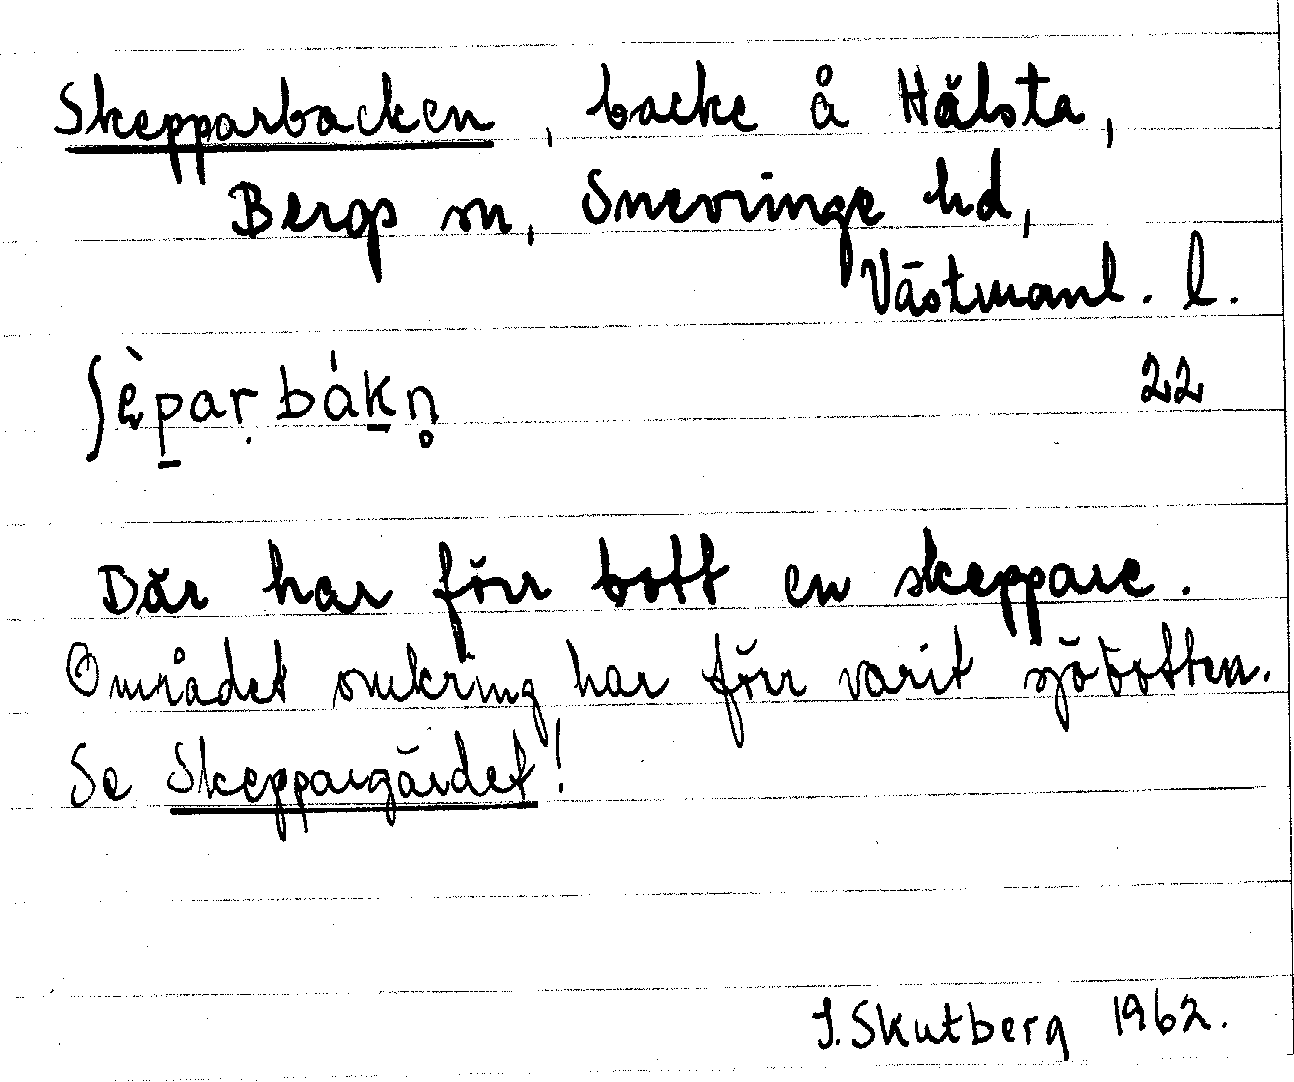 Skepparbacken, backe å Hälsta,
Bergs sn, Snevringe hd,
Västmanl. l.
ʃèp̲aṛbák̲n̥ 22
Där har förr bott en skeppare.
Området omkring har förr varit sjöbotten.
Se Skeppargärdet!
I. Skutberg 1962.